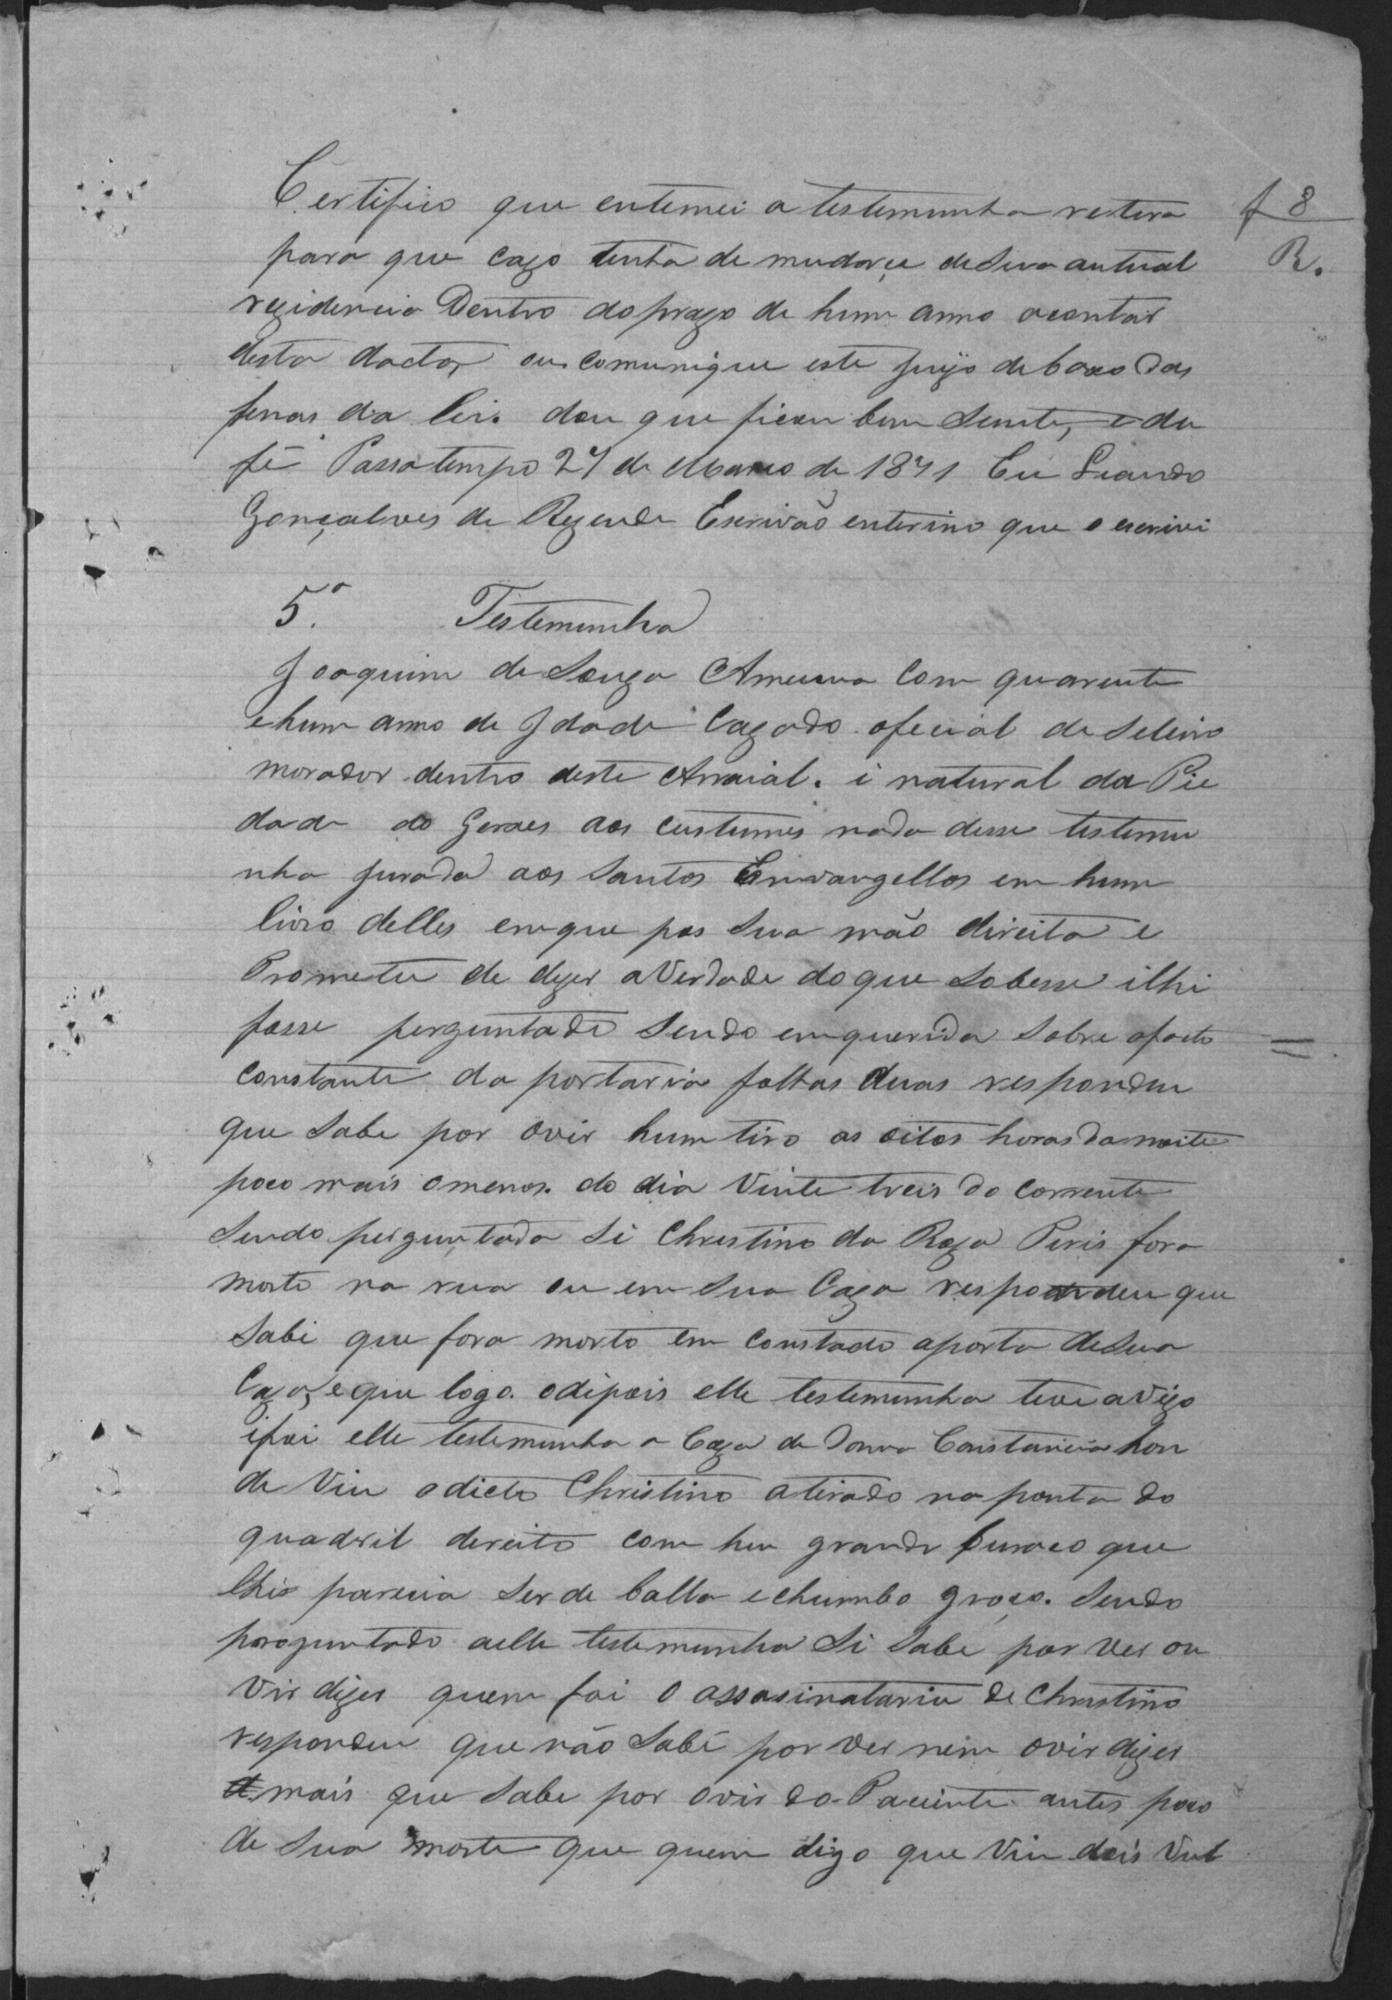 f 8
R.
Certifico que entemei a testemunha retera
para que cazo tenha de mudarçe de Sua autual
rezidencia Dentro do prazo de hum anno acontar
desta dacta, ou comunique este juizo debaxo das
penas da lei. dou que ficou bem Siente, e dou
fé Passatempo 27 de Março de 1871 Eu Leando
Gonçalves de Rezende Escrivão enterino que o escrivi
5.ª Testemunha
Joaquim de Souza com quarente
e hum anno de Idade Cazado oficial de Seleiro
morador dentro deste Arraial. i natural da Pie
dade do Geraes aos custumes nada desse testemu
nha jurada aos Santos Envangellos em hum
livro delles emque pos Sua mão direita e
Prometeu de dizer a Verdade do que Sobesse ilhi
fosse perguntade Sendo emquerida Sobre ofacto
constante da portaria folhas duas respondeu
que Sabe por ovir hum tiro as oitos horas da noite
poco mais omenos. do dia Vinte treis do corrente
Sendo perguntada Si Christino da Roza Peris fora
morto na rua ou em Sua Caza respondeu que
Sabi que fora morto em Constado aporta de Sua
Caza, e que logo. odipois elle testemunha teve avizo
ifoi elle testemunha a Caza de Dona Constancia hon
de Viu odicto Christino atirado na ponta do
quadril dereito com hu grande buraco que
lhis parecia Ser de balla e chumbo groço. Sendo
proguntado aelle testemunha Si Sabe por ver ou
vir dizer quem foi o assasinatario de Christino
respondeu que não Sabe por ver nem ovir dizer
mais que Sabe por ovir do Paciente antes poco
de Sua morte que quem digo que Viu dois Vul